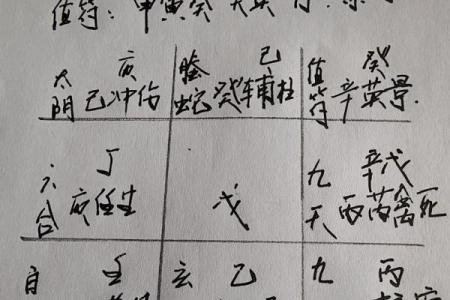 值符：甲寅癸 天英
太阴 庚 己冲伤
螣蛇 己 癸辅杜
值符 癸 辛英景
六合 丁 庚任生
戊
九天 辛戊 丙芮禽死
壬
玄 乙
九 丙